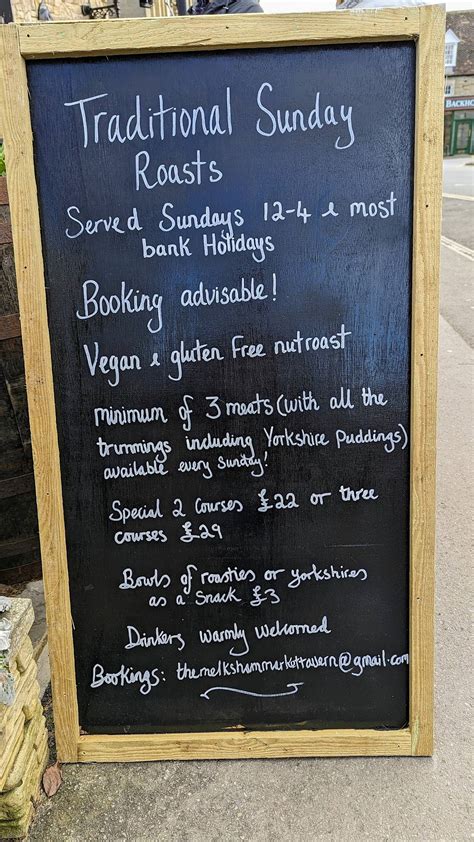 Traditional Sunday
Roasts
Served Sundays 12-4 & most
bank Holidays
Booking advisable!
Vegan & gluten Free nutroast
minimum of 3 meats (with all the
trimmings including Yorkshire Puddings)
available every Sunday!
Special 2 Courses £22 or three
courses £29
Bowls of roasties or yorkshires
as a Snack £3
Drinkers warmly welcomed
Bookings: themelkshammarkettavern@gmail.com